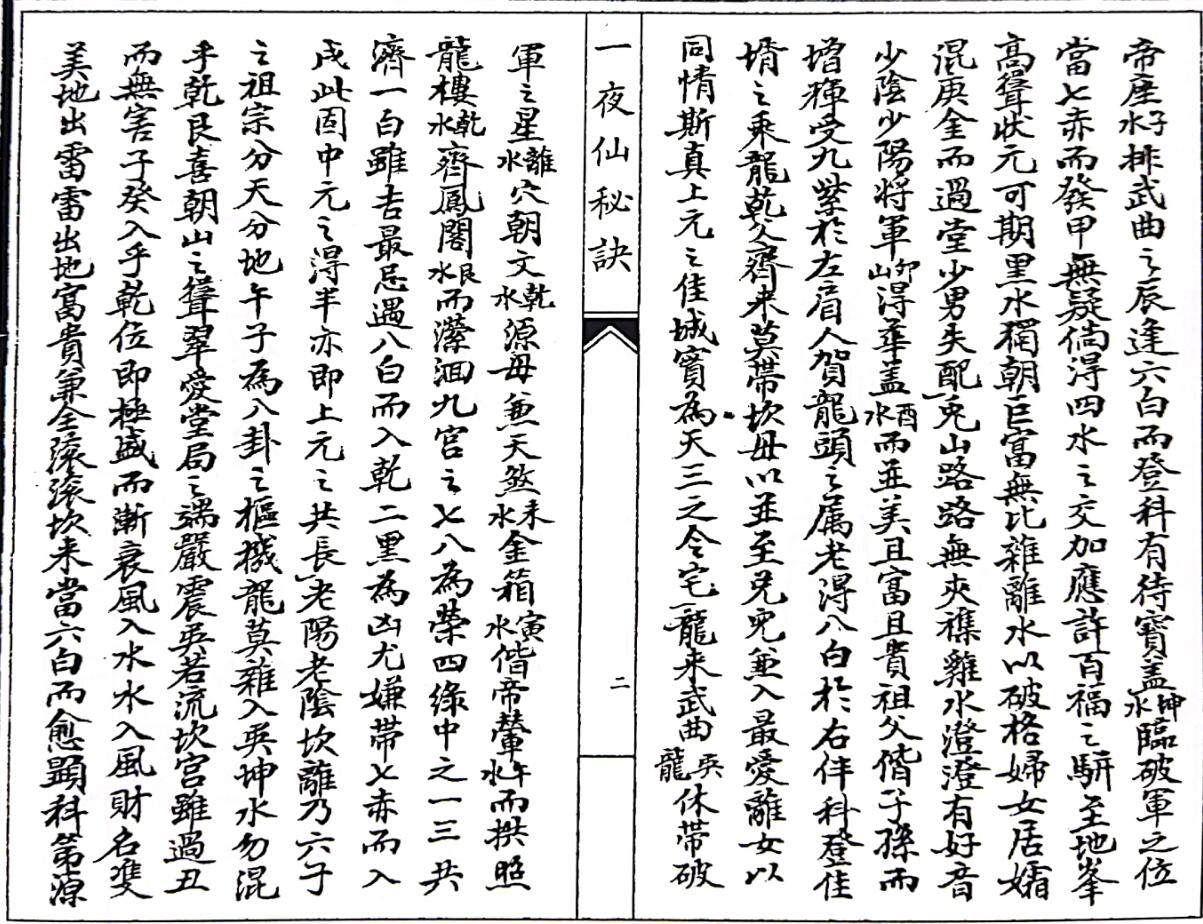 帝座子水排武曲之辰逢六白而登科有待寶盖坤水臨破軍之位
當七赤而發甲無疑倘淂四水之交加應許百福之駢至地峯
高聳狀元可期黑水獨朝巨富無比雜離水以破格婦女居孀
混庚金而過堂少男失配兎山路路無夾襍雞水澄澄有好音
少陰少陽將軍卯山淂華盖酉水而並美且富且貴祖父偕子孫而
增輝受九紫於左肩人賀龍頭之属老淂八白於右伴科登佳
壻之乘龍乾父齊来莫帶坎母以並至兎兒兼入最愛離女以
同情斯真上元之佳城實為天三之令宅龍来武曲巽龍休帶破
一夜仙秘訣
二
軍之星離水穴朝文乾水源毋兼天煞未水金箱寅水偕帝輦午水而拱照
龍樓乾水齊鳳閣艮水而瀠洄九宮之七八為榮四緑中之一三共
濟一白雖吉最忌遇八白而入乾二黑為凶尤嫌帶七赤而入
戌此固中元之淂半亦即上元之共長老陽老陰坎離乃六子
之祖宗分天分地午子為八卦之樞機龍莫雜入巽坤水勿混
乎乾艮喜朝山之聳翠愛堂局之端嚴震巽若流坎宮雖過丑
而無害子癸入乎乾位即極盛而漸衰風入水水入風財名雙
美地出雷雷出地富貴兼全滚滚坎来當六白而愈顕科第源